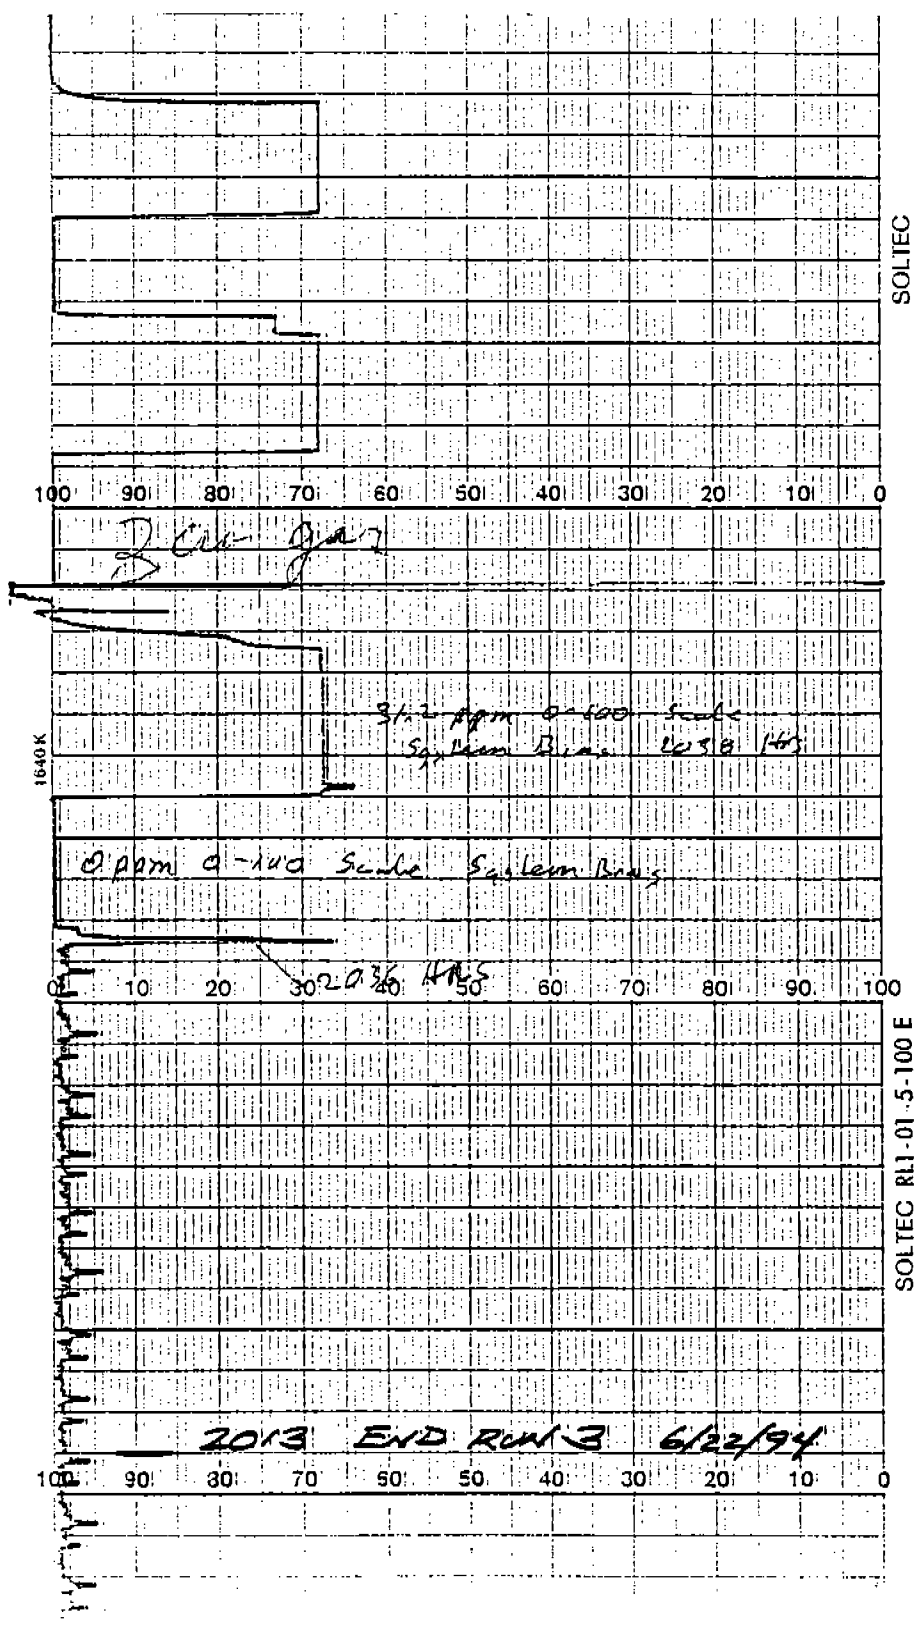 SOLTEC
100 90 80 70 60 50 40 30 20 10 0
gas
31.2 ppm 0-100 Scale
System Bias 2038 HRS
1640 K
0 ppm 0-100 Scale System Bias
2036 HRS
0 10 20 30 40 50 60 70 80 90 100
SOLTEC RL1-01-5-100 E
2013 END RUN 3 6/22/94
100 90 80 70 60 50 40 30 20 10 0